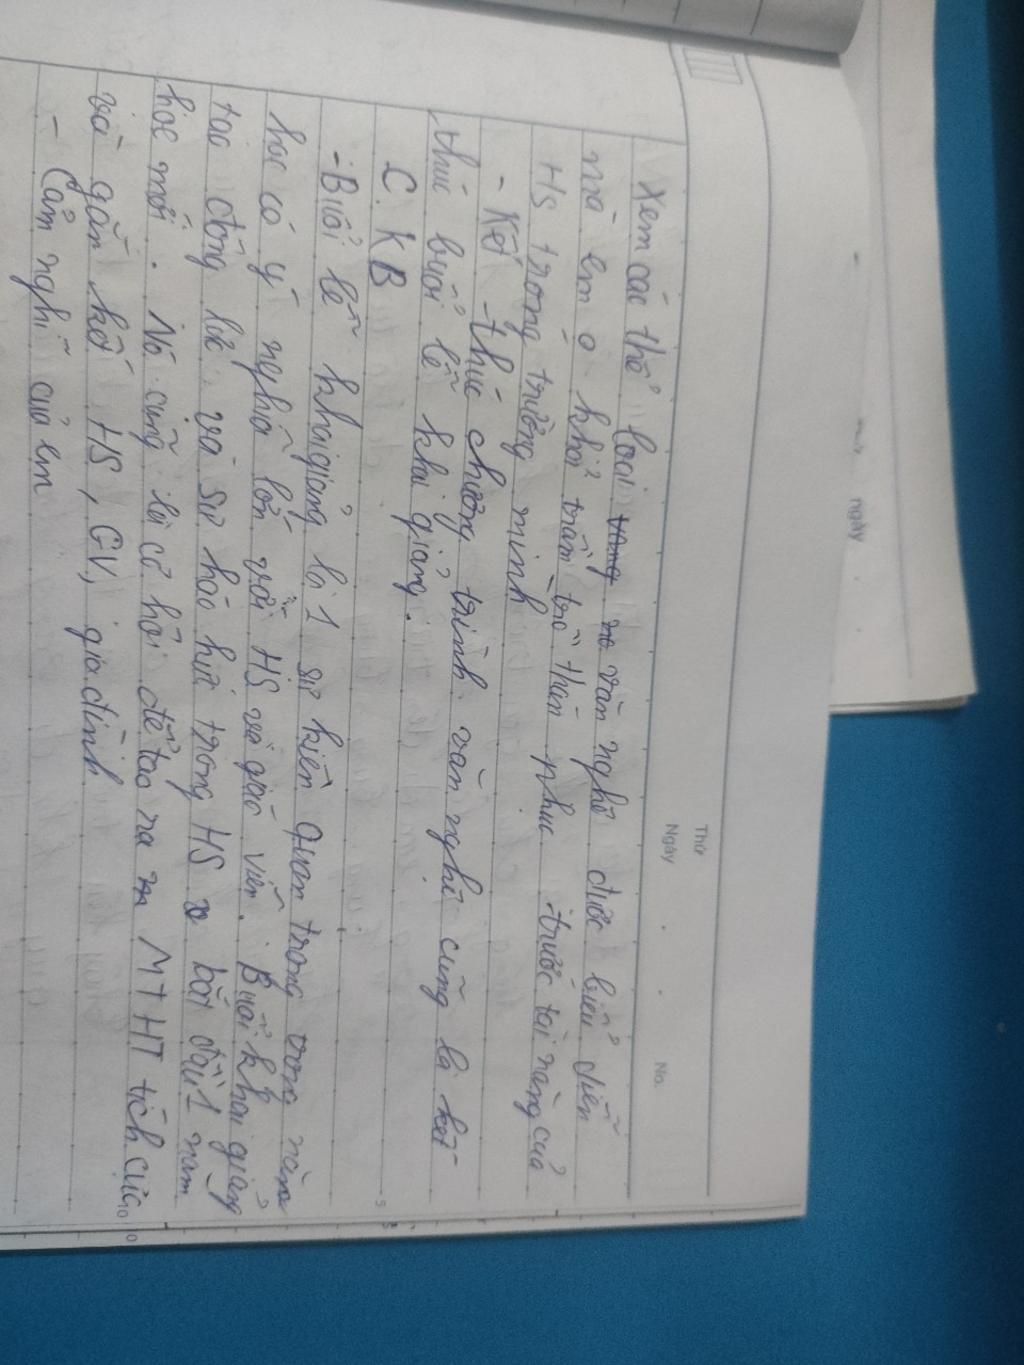 Thứ
Ngày . . No.
Xem các thể loại văn nghệ được biểu diễn
mà em o khỏi trầm trồ thán phục trước tài năng của
HS trong trường mình
- Kết thúc chương trình văn nghệ cũng là kết
thúc buổi lễ khai giảng.
C. KB
- Buổi lễ khai giảng là 1 sự kiện quan trong trong năm
học có ý nghĩa lớn với HS và giáo viên. Buổi khai giảng
tạo động lực và sự háo hức trong HS bắt đầu 1 năm
học mới. Nó cũng là cơ hội để tạo na MTHT tích cực
và gắn kết HS, GV, gia đình
- Cảm nghĩ của em
ngày
5
10